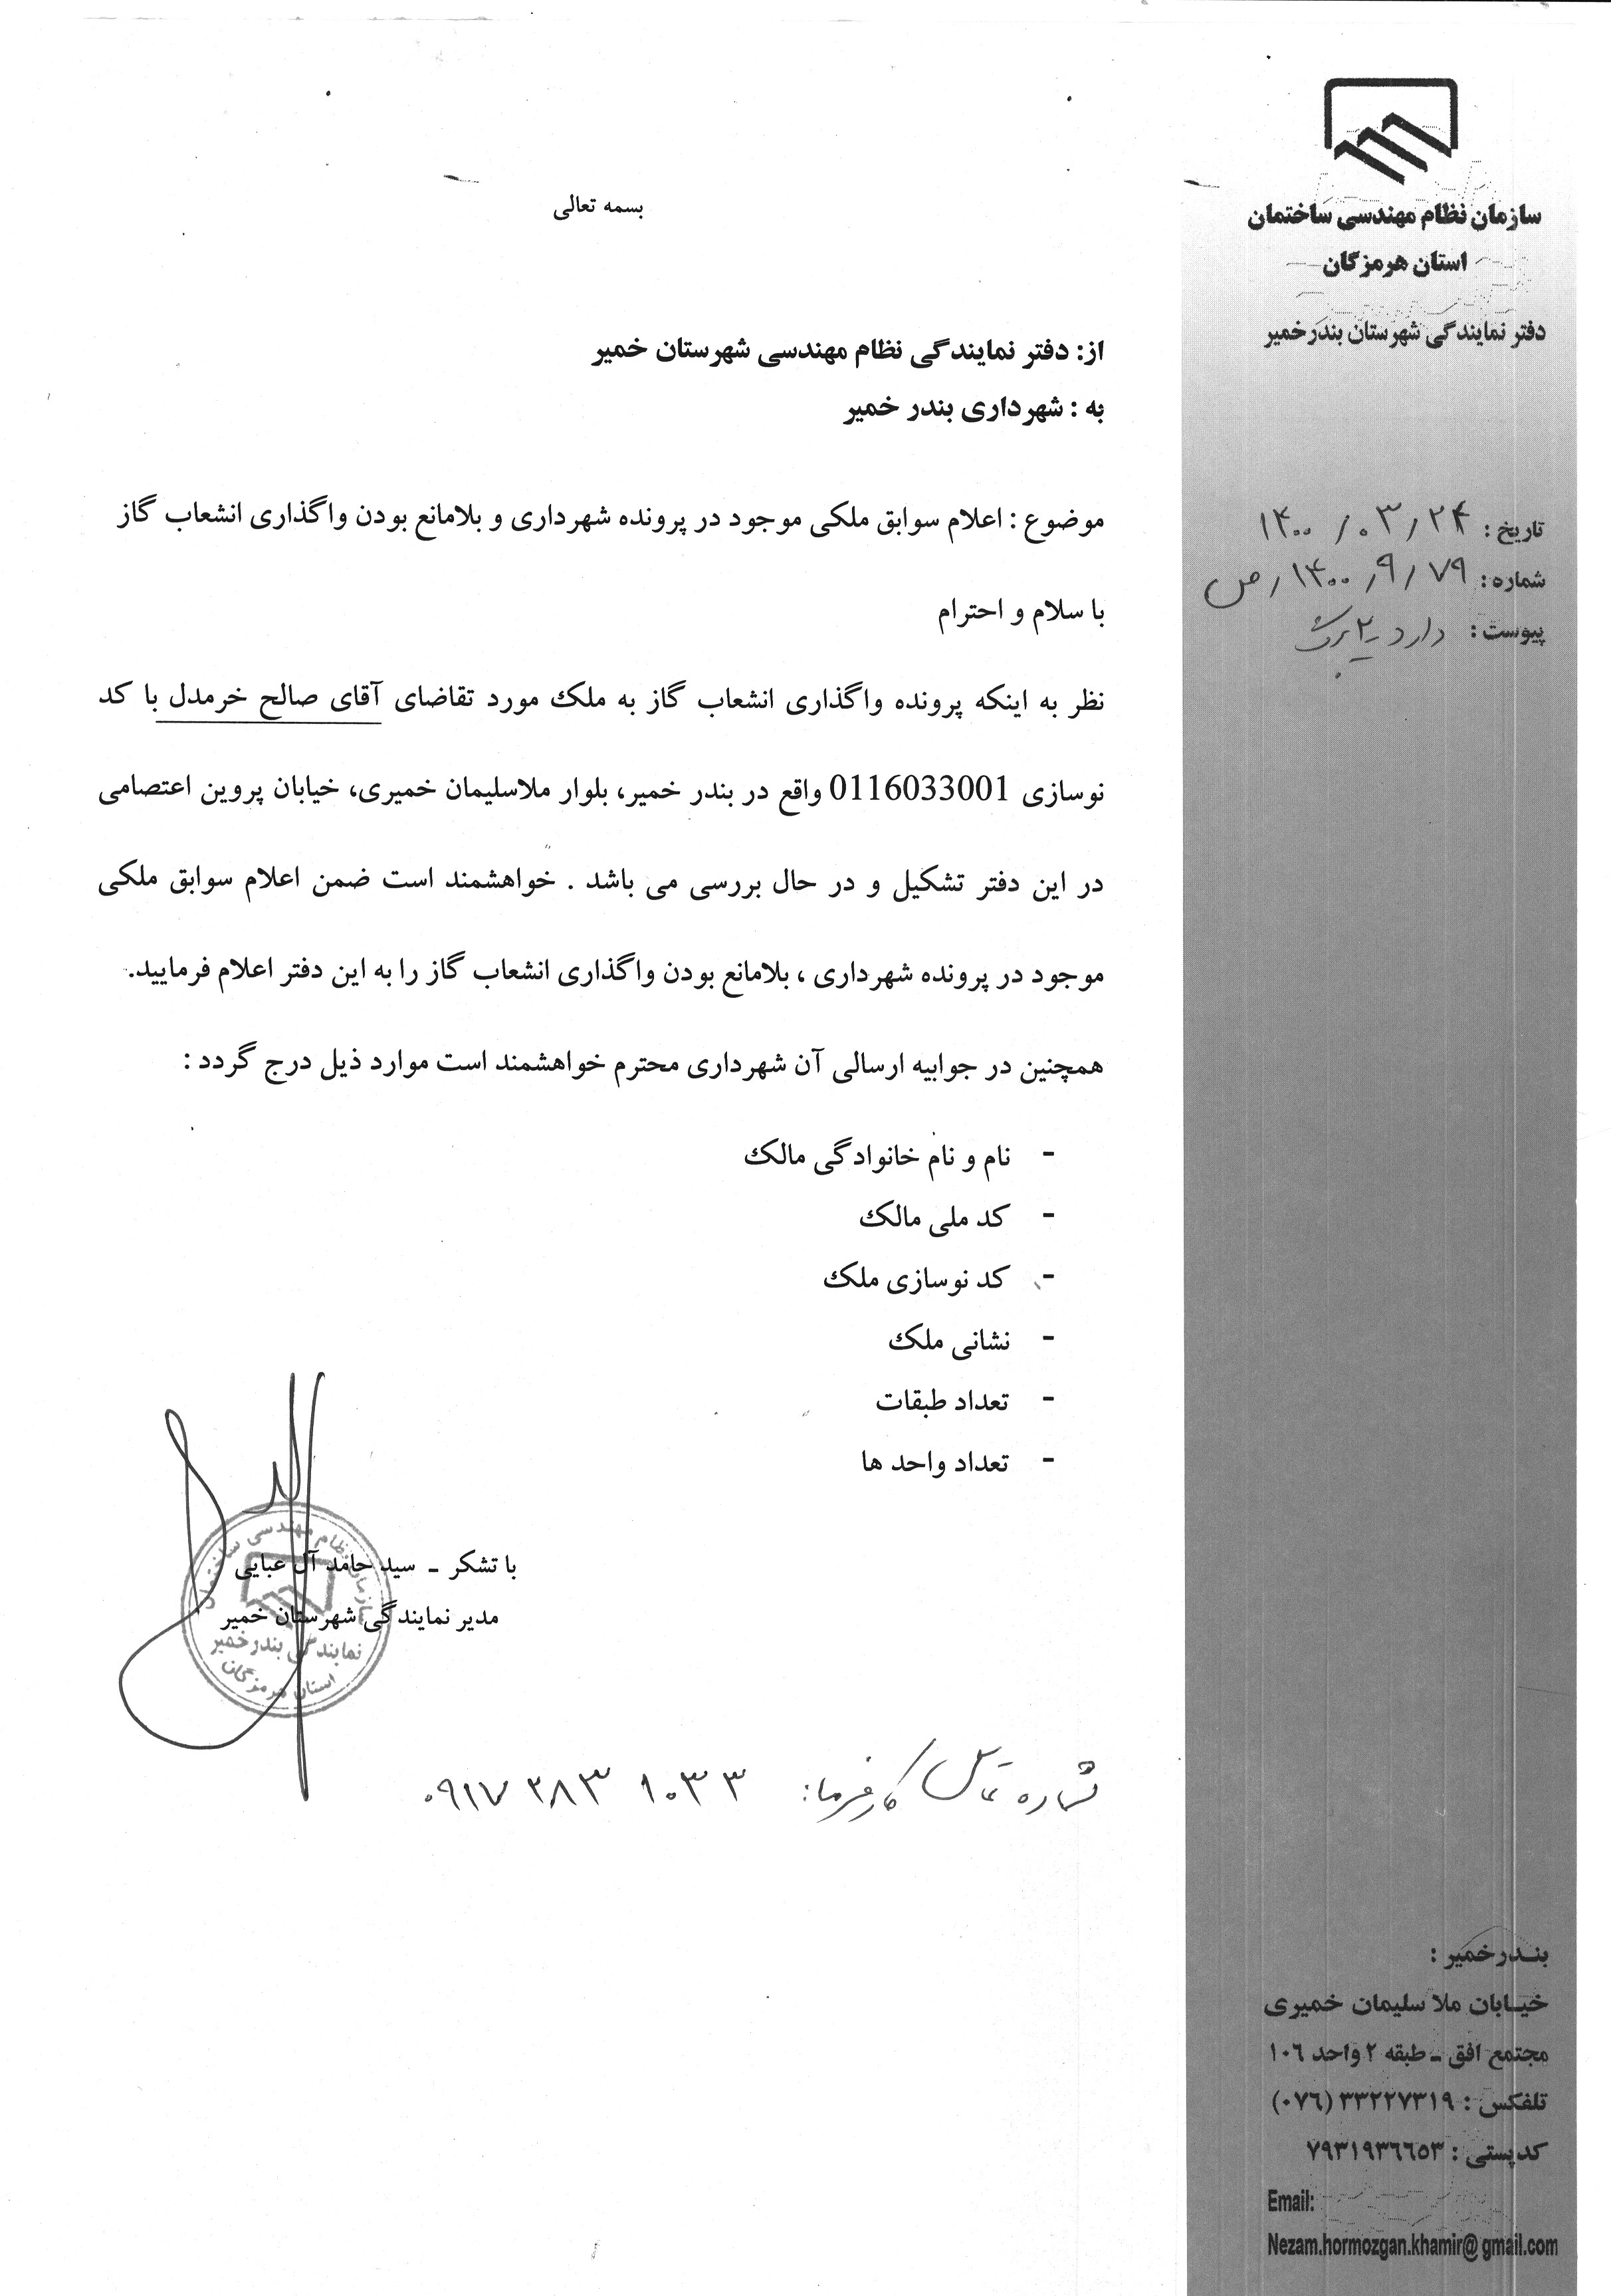 سازمان نظام مهندسی ساختمان
استان هرمزگان
دفتر نمایندگی شهرستان بندرخمیر
تاریخ : ۱۴۰۰/۰۳/۲۴
شماره : ۷۹/۹/۱۴۰۰/ص
پیوست : دارد ۲ برگ
بسمه تعالی
از: دفتر نمایندگی نظام مهندسی شهرستان خمیر
به : شهرداری بندر خمیر
موضوع : اعلام سوابق ملکی موجود در پرونده شهرداری و بلامانع بودن واگذاری انشعاب گاز
با سلام و احترام
نظر به اینکه پرونده واگذاری انشعاب گاز به ملک مورد تقاضای آقای صالح خرمدل با کد
نوسازی 0116033001 واقع در بندر خمیر، بلوار ملاسلیمان خمیری، خیابان پروین اعتصامی
در این دفتر تشکیل و در حال بررسی می باشد . خواهشمند است ضمن اعلام سوابق ملکی
موجود در پرونده شهرداری ، بلامانع بودن واگذاری انشعاب گاز را به این دفتر اعلام فرمایید.
همچنین در جوابیه ارسالی آن شهرداری محترم خواهشمند است موارد ذیل درج گردد :
- نام و نام خانوادگی مالک
- کد ملی مالک
- کد نوسازی ملک
- نشانی ملک
- تعداد طبقات
- تعداد واحد ها
با تشکر ـ سید حامد آل عبایی
مدیر نمایندگی شهرستان خمیر
سازمان نظام مهندسی ساختمان
نمایندگی بندرخمیر
استان هرمزگان
شماره تماس کارفرما: ۰۹۱۷ ۲۸۳ ۱۰۳۳
بندرخمیر :
خیابان ملا سلیمان خمیری
مجتمع افق ـ طبقه ۲ واحد ۱۰۶
تلفکس : ۳۳۲۲۷۳۱۹ (۰۷۶)
کدپستی : ۷۹۳۱۹۳۶۶۵۳
Email:
Nezam.hormozgan.khamir@gmail.com